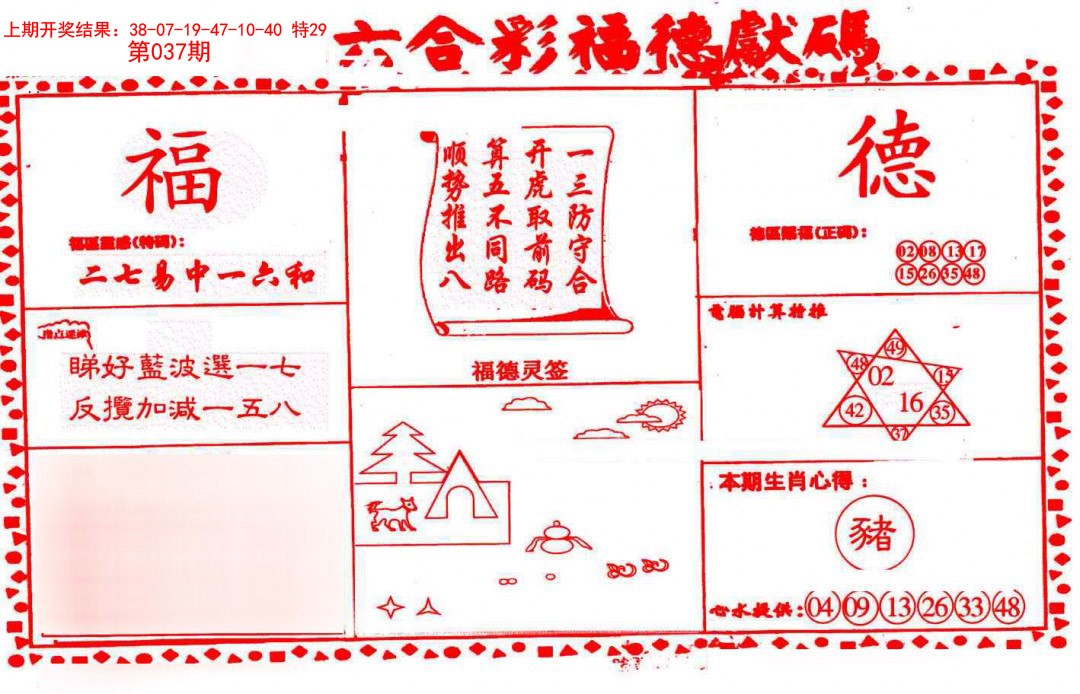 上期开奖结果：38-07-19-47-10-40 特29
第037期
六合彩福德獻碼
福
福區靈感(特碼)：
二七易中一六和
指点迷津
睇好藍波選一七
反攬加減一五八
一三防守合
开虎取前码
算五不同路
顺势推出八
福德灵签
德
德區賜福(正碼)：
02 08 13 17
15 26 35 48
電腦計算拾推
49
48 02 15
42 16 35
37
本期生肖心得：
豬
心水提供：04 09 13 26 33 48